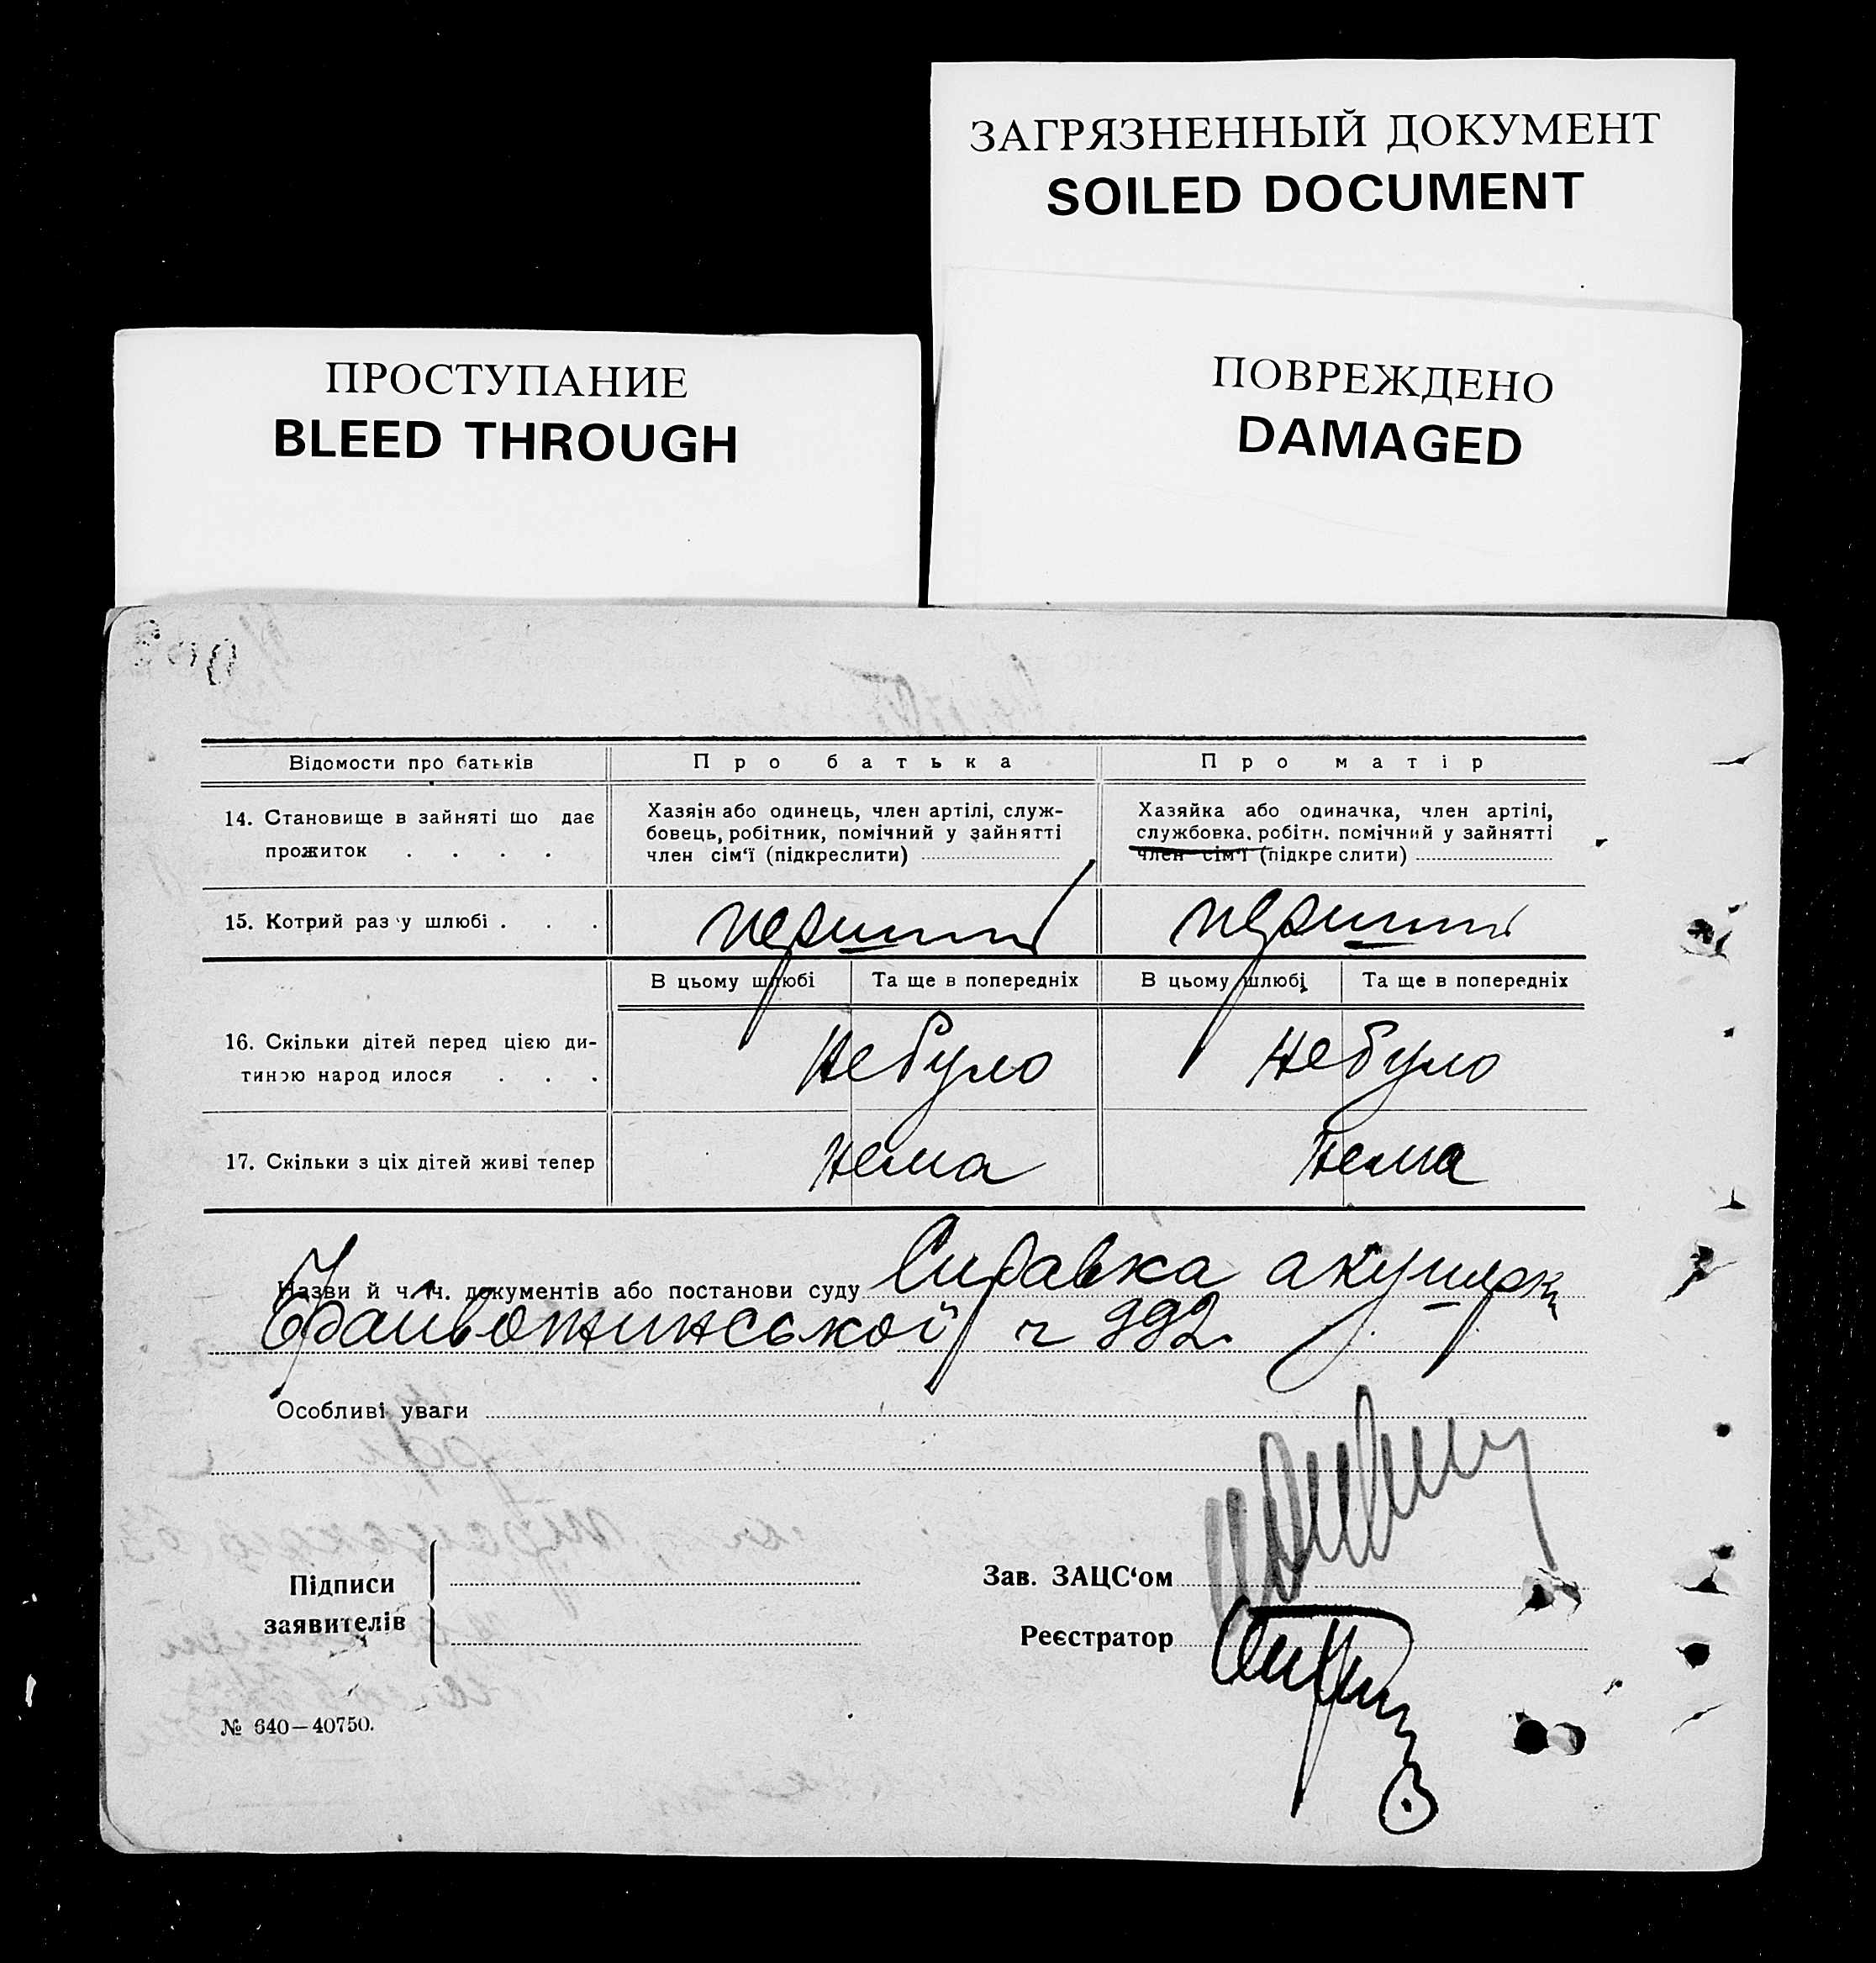 ЗАГРЯЗНЕННЫЙ ДОКУМЕНТ
SOILED DOCUMENT
ПРОСТУПАНИЕ
BLEED THROUGH
ПОВРЕЖДЕНО
DAMAGED
Відомости про батьків Про батька Про матір
14. Становище в зайняті що дає
прожиток . . . .
Хазяін або одинець, член артілі, служ-
бовець, робітник, помічний у зайнятті
член сім‘ї (підкреслити)
Хазяйка або одиначка, член артілі,
службовка, робітн. помічний у зайнятті
член сім‘ї (підкреслити)
15. Котрий раз у шлюбі . . . перший перший
В цьому шлюбі Та ще в попередніх В цьому шлюбі Та ще в попередніх
16. Скільки дітей перед цією ди-
тиною народилося . . .
не було не було
17. Скільки з ціх дітей живі тепер нема нема
Назви й ч. ч. документів або постанови суду Справка акушерки
ч 992.
Особливі уваги
Підписи
заявителів
Зав. ЗАЦС‘ом
Реєстратор
№ 640—40750.